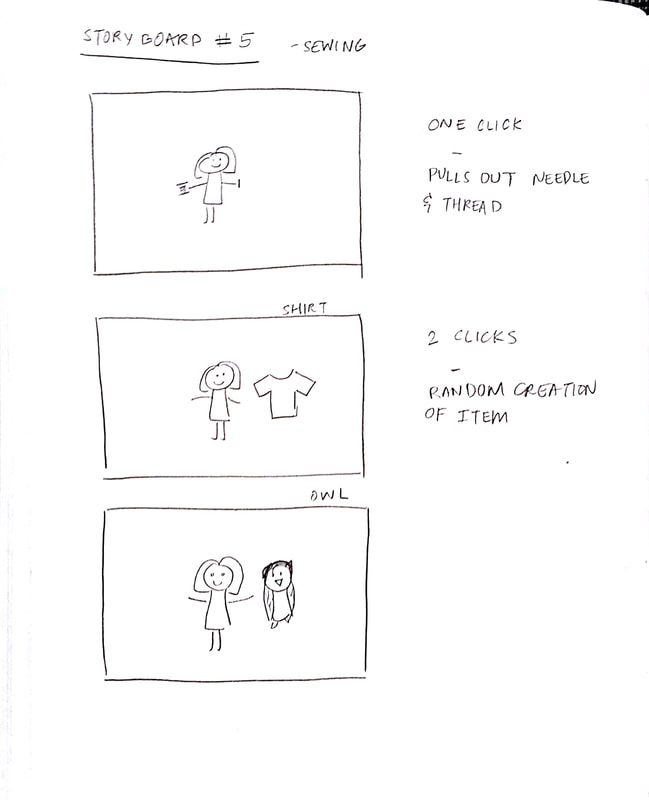 STORY BOARD # 5 - SEWING
ONE CLICK
-
PULLS OUT NEEDLE
& THREAD
SHIRT
2 CLICKS
-
RANDOM CREATION
OF ITEM
OWL